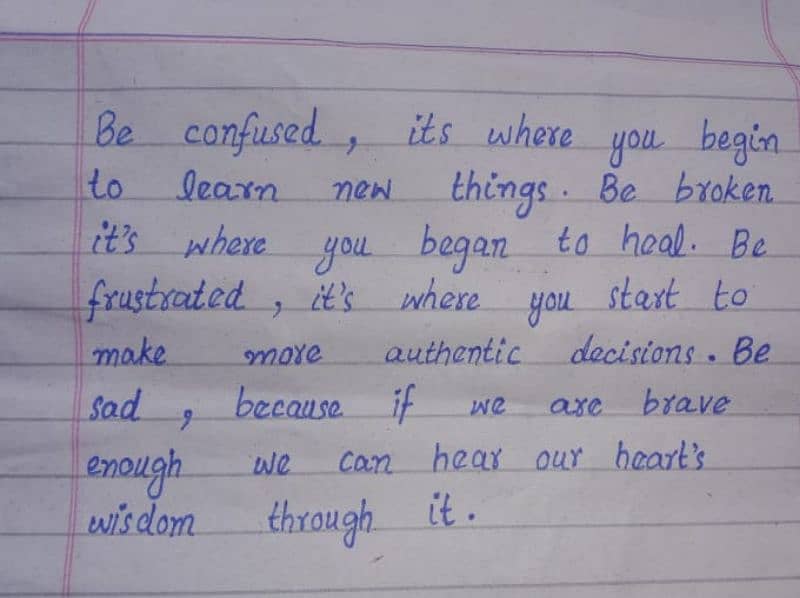 Be confused , its where you begin
to learn new things. Be broken
it's where you began to heal. Be
frustrated , it's where you start to
make more authentic decisions. Be
sad , because if we are brave
enough we can hear our heart's
wisdom through it.